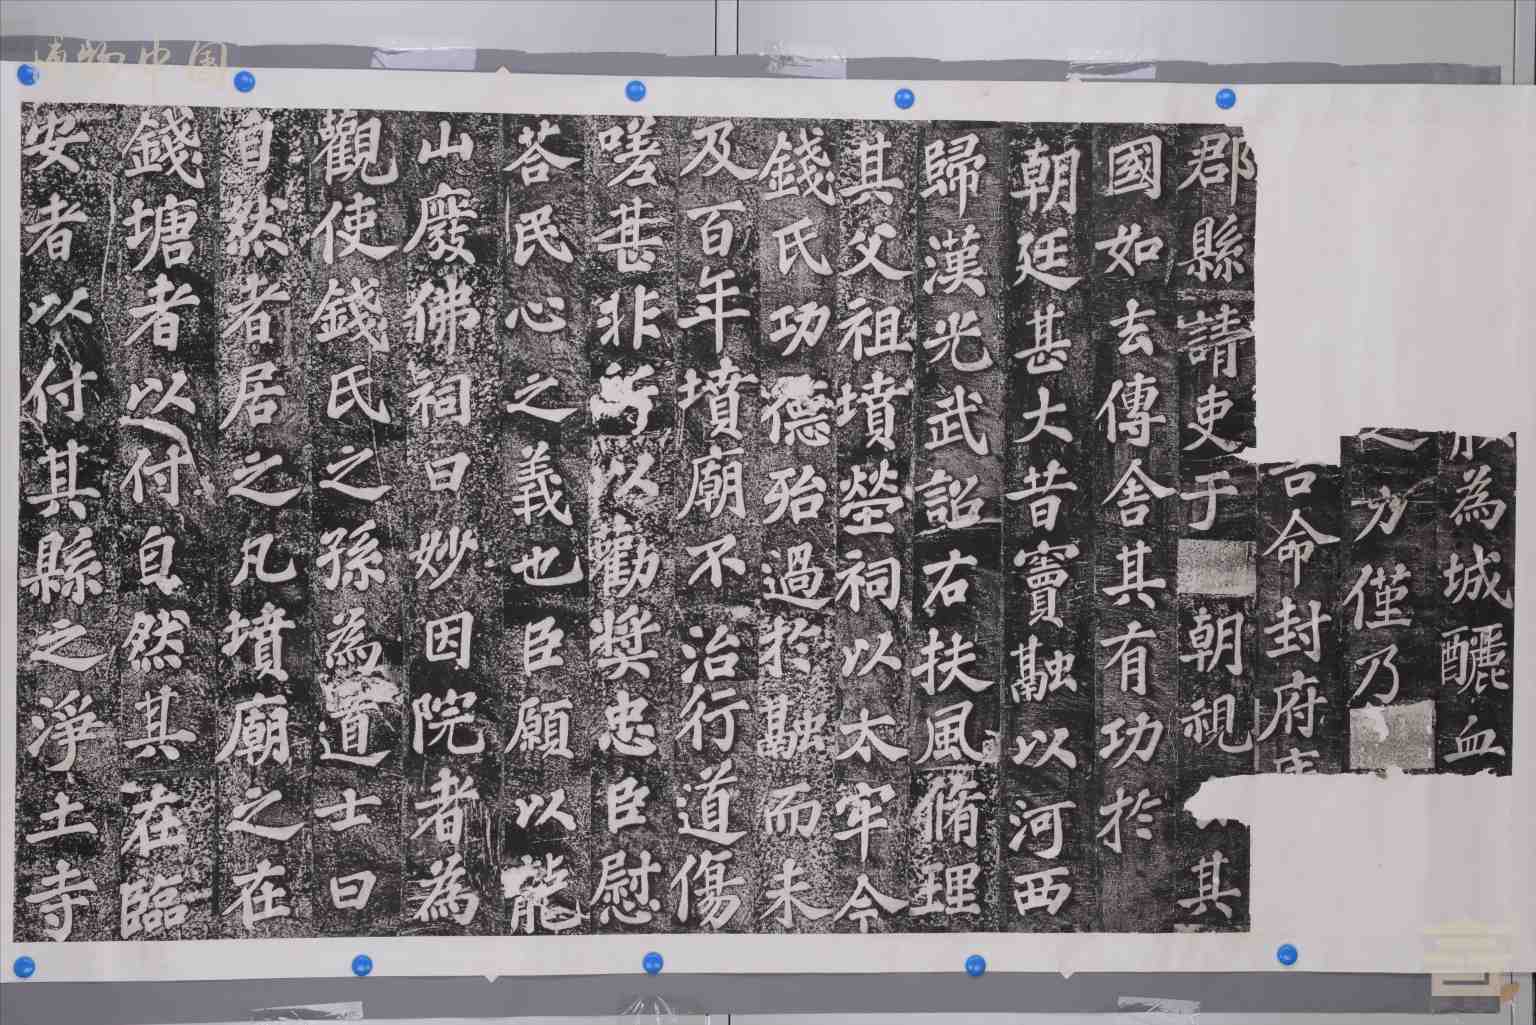 為城釃血
之力僅乃
命封府庫
郡縣請吏于朝視其
國如去傳舍其有功於
朝廷甚大昔竇融以河西
歸漢光武詔右扶風脩理
其父祖墳塋祠以太牢今
錢氏功德殆過於融而未
及百年墳廟不治行道傷
嗟甚非所以勸奬忠臣慰
荅民心之義也臣願以龍
山廢佛祠曰妙因院者為
觀使錢氏之孫為道士曰
自然者居之凡墳廟之在
錢塘者以付自然其在臨
安者以付其縣之淨土寺
博物中国